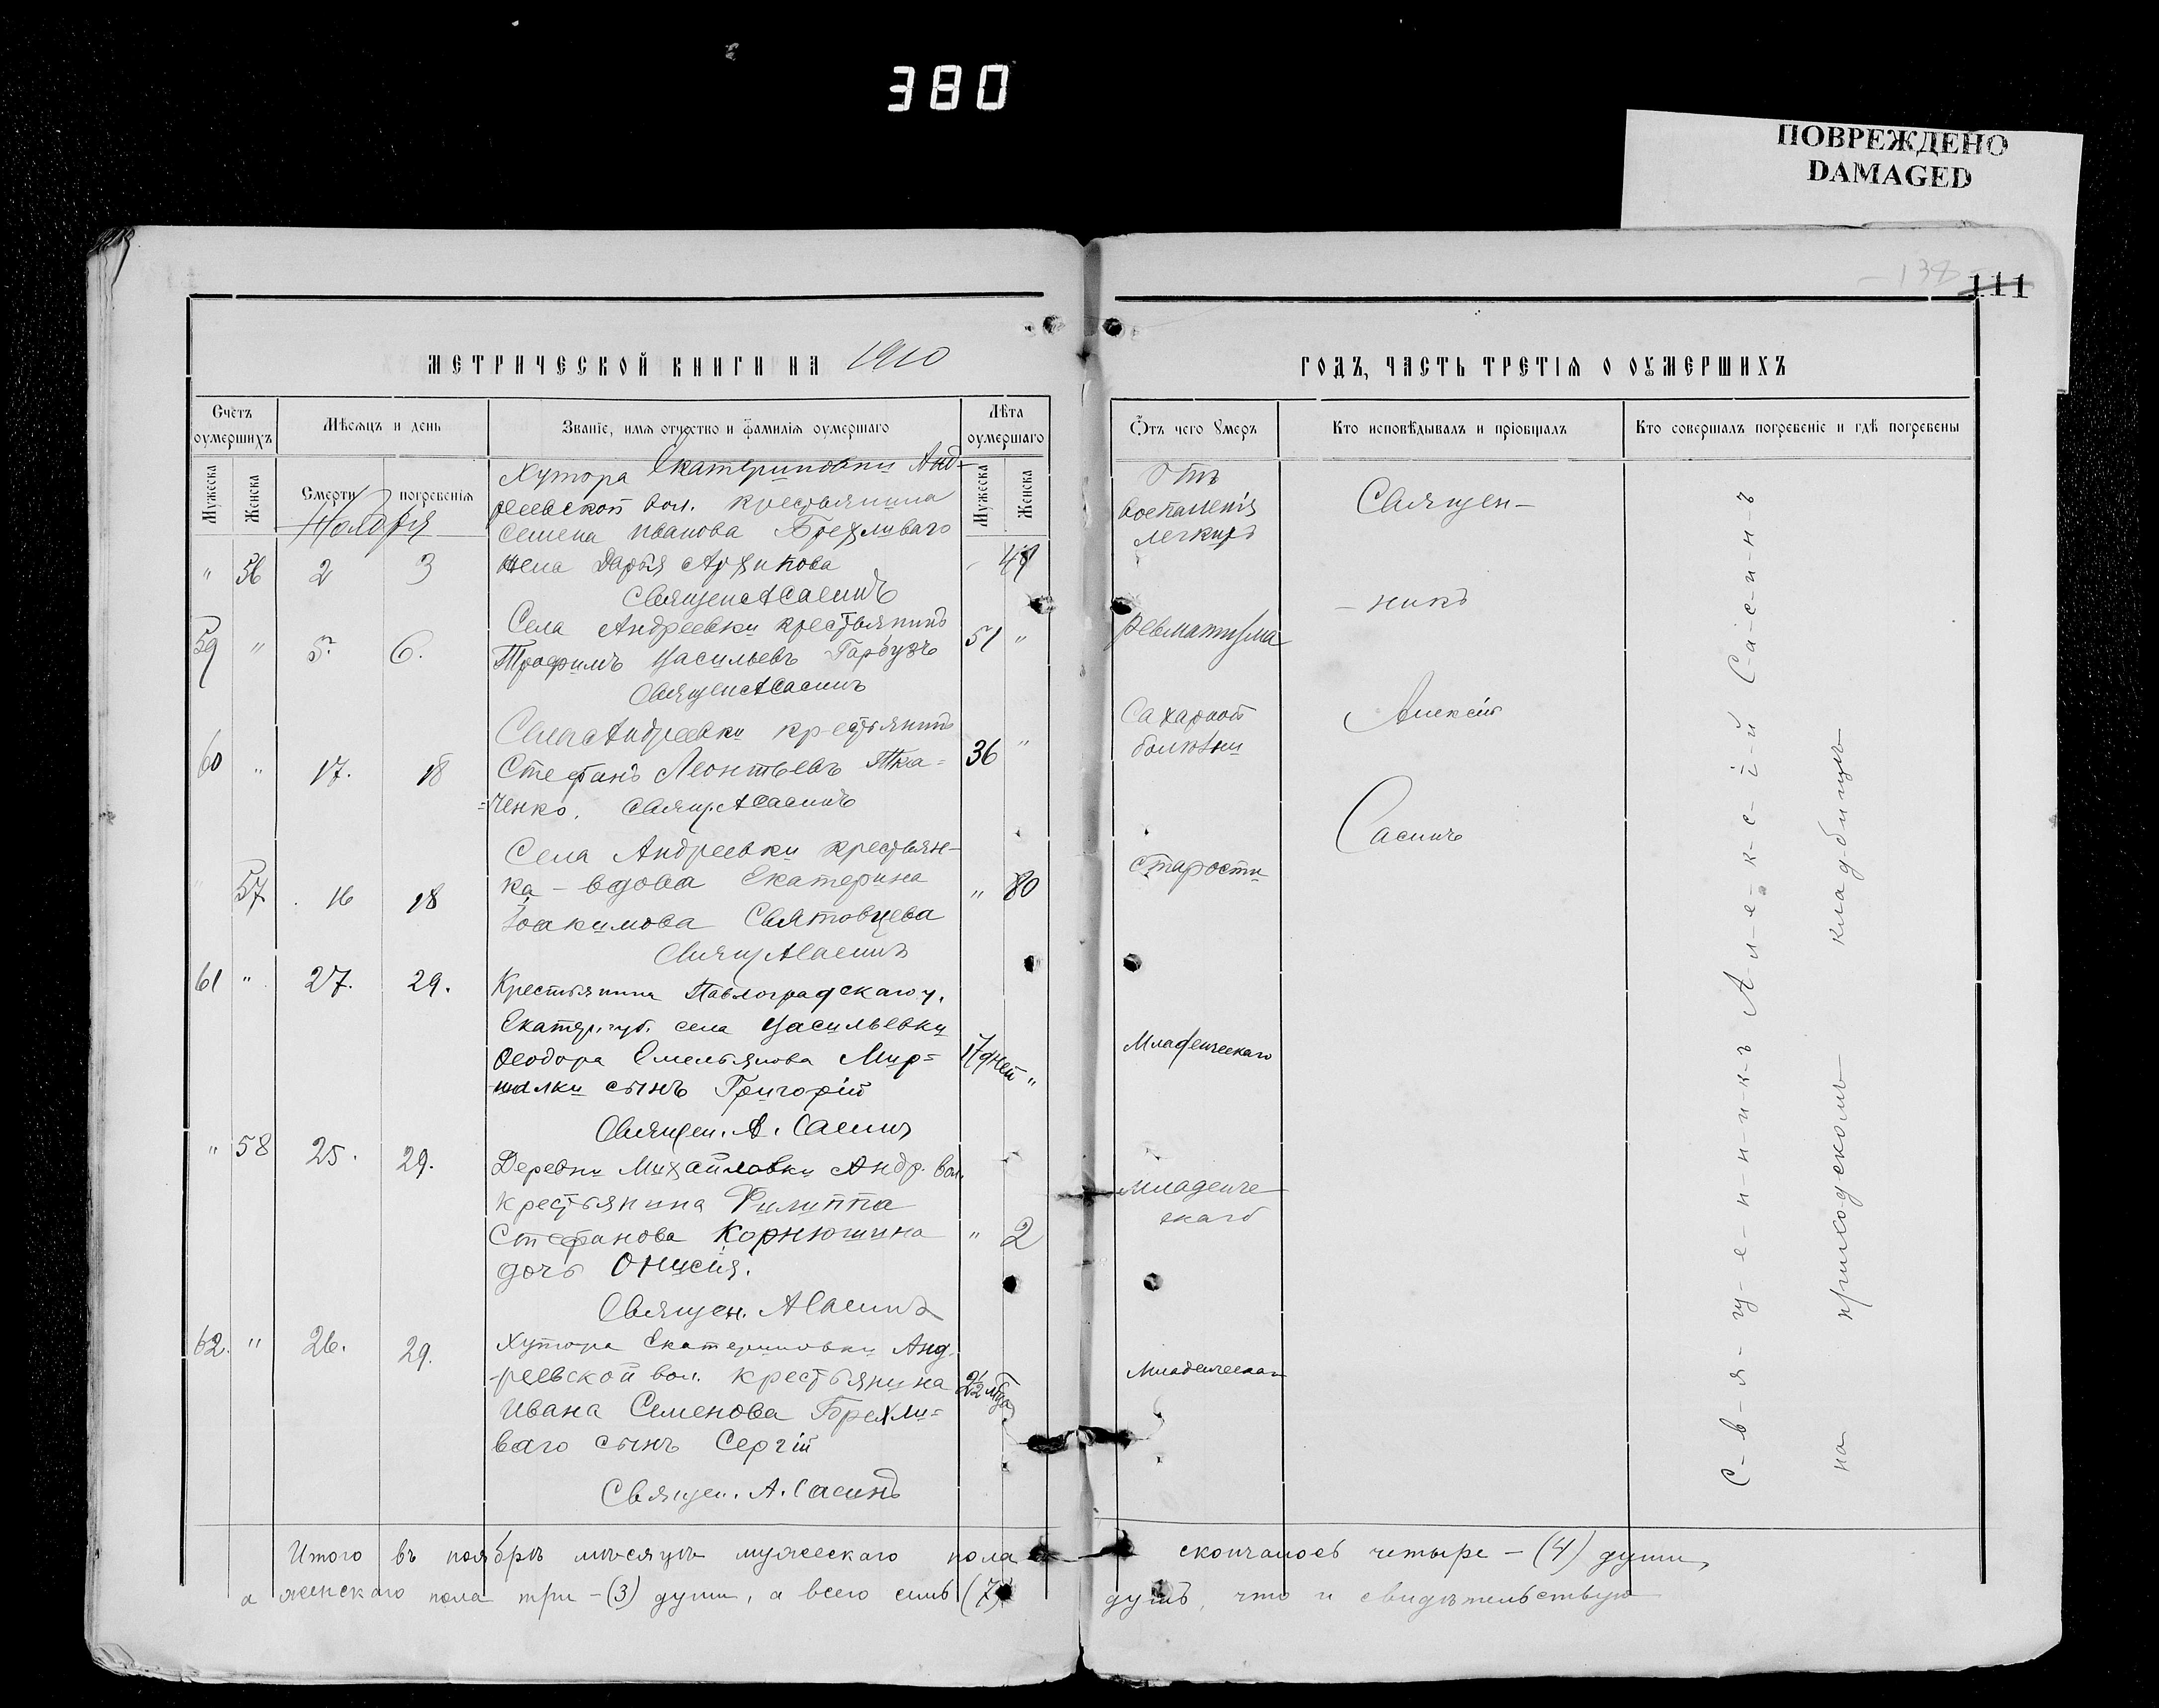 380
ПОВРЕЖДЕНО
DAMAGED
138
111
МЕТРИЧЕСКОЙ КНИГИ НА 1910
ГОДЪ, ЧАСТЬ ТРЕТІЯ О ОУМЕРШИХЪ
Счетъ оумершихъ
Мѣсяцъ и день
Званіе, имя отчество и фамилія оумершаго
Лѣта оумершаго
Отъ чего Умеръ
Кто исповѣдывалъ и пріобщалъ
Кто совершалъ погребеніе и гдѣ погребены
Мужеска
Женска
Смерти
погребенія
Мужеска
Женска
Ноября
Хутора Екатериновки Анд-
реевской вол. крестьянина
Семена Иванова Брехливаго
" 56 2 3 жена Дарья Архипова
Священ АСасинъ
Отъ
воспаленія
легкихъ
Села Андреевки крестьянинъ
59 " 5. 6. Трофимъ Васильевъ Гарбузъ 51 " ревматизма
Священ АСасинъ
Села Андреевки крестьянинъ
60 " 17. 18 Стефанъ Леонтьевъ Тка= 36 "
=ченко. Свящ. АСасинъ
Сахарной
болѣзни
Села Андреевки крестьян-
57 16 18 ка - вдова Екатерина " 80 старости
Іоакимова Святовцева
Свящ АСасинъ
61 " 27. 29. Крестьянина Павлоградскаго у.
Екатер. губ. села Васильевки
Ѳеодора Емельянова Мир=
-шалки сынъ Григорій
17 дней " Младенческаго
Священ. А. Сасинъ
" 58 25. 29. Деревни Михайловки Андр. вол.
крестьянина Филиппа
Стефанова Корнюшина " 2
дочь Онисія.
младенче-
скаго
Священ. АСасинъ
62. " 26. 29. Хутора Екатериновки Анд-
-реевской вол. крестьянина
Ивана Семенова Брехли=
ваго сынъ Сергій
Младенческаго
Священ. А. Сасинъ
Священ-
-никъ
Алексій
Сасинъ
С-в-я-щ-е-н-н-и-к-ъ А-л-е-к-с-і-й С-а-с-и-н-ъ
на приходскомъ кладбищѣ
Итого въ ноябрѣ мѣсяцѣ мужескаго пола скончалось четыре - (4) души,
а женскаго пола три - (3) души, а всего семь (7) душъ, что и свидѣтельствую